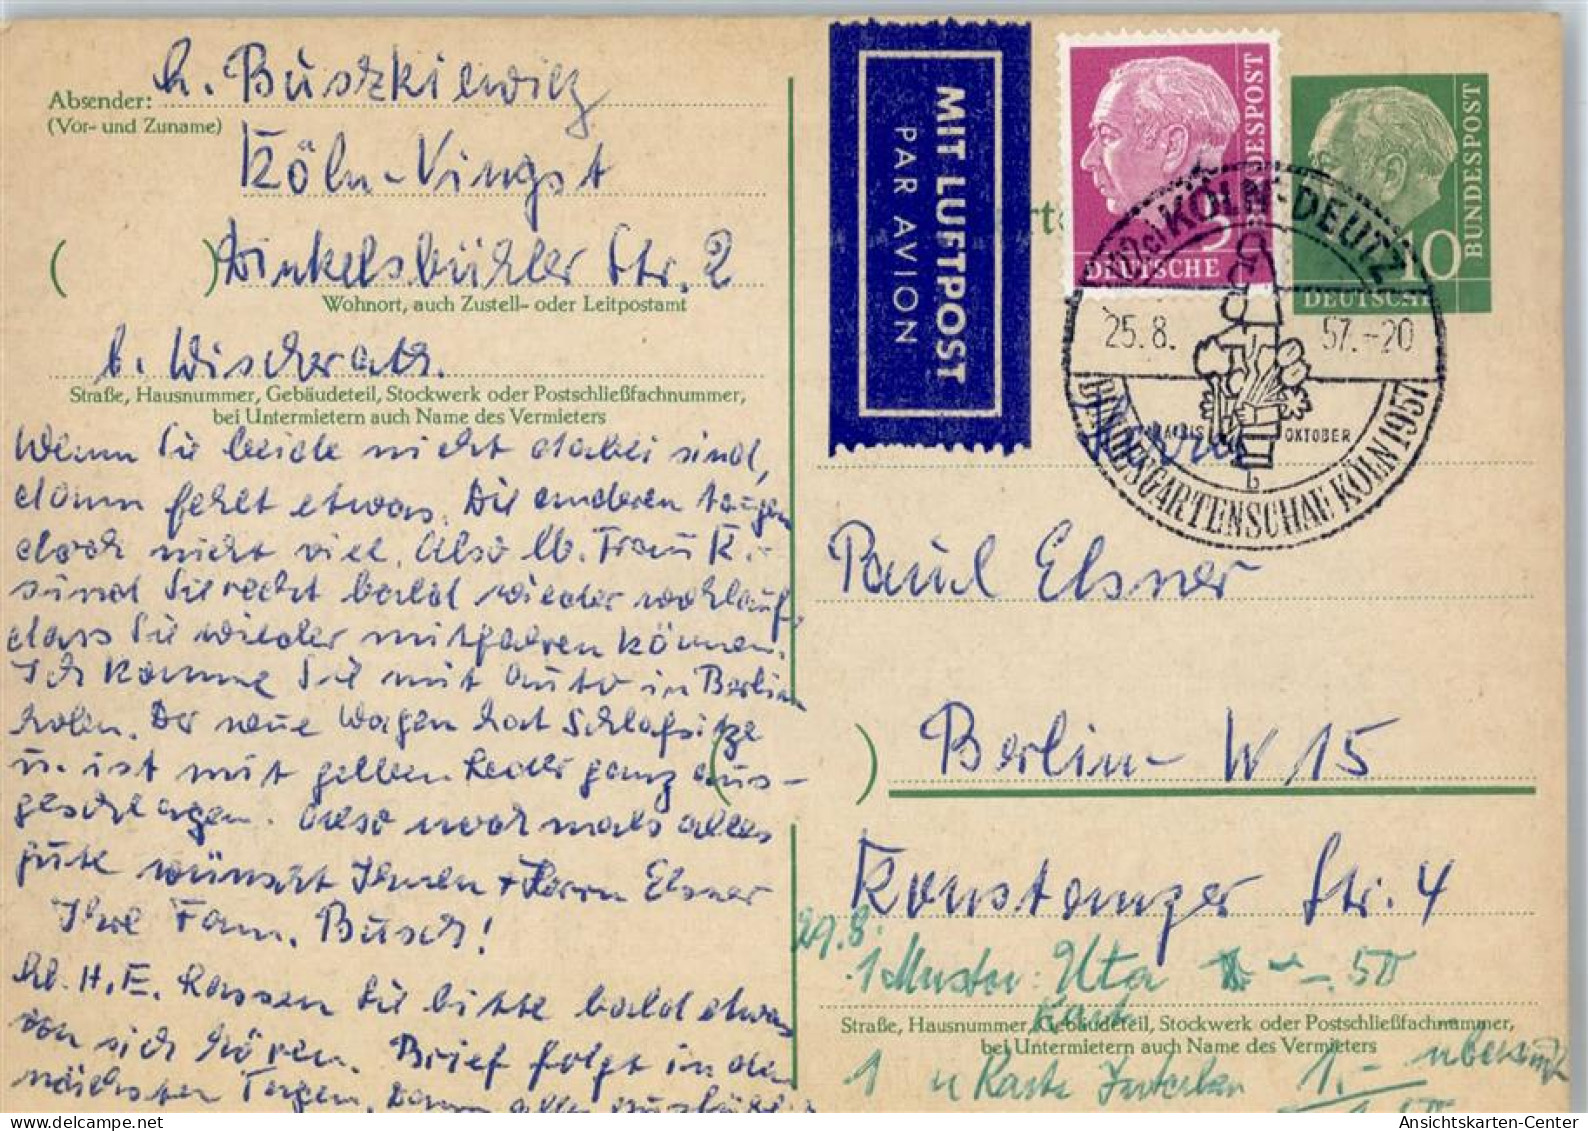 Absender: H. Buszkiewicz
(Vor- und Zuname)
Köln-Vingst
( ) Dinkelsbühler Str. 2
Wohnort, auch Zustell- oder Leitpostamt
b. Wischerath.
Straße, Hausnummer, Gebäudeteil, Stockwerk oder Postschließfachnummer,
bei Untermietern auch Name des Vermieters
Wenn Sie beide nicht dabei sind,
dann fehlt etwas. Die anderen taugen
doch nicht viel. Also lb. Frau K.
sind Sie recht bald wieder wohlauf,
dass Sie wieder mitfahren können.
Ich komme Sie mit Auto in Berlin
holen. Der neue Wagen hat Schlafsitze
u. ist mit gelben Leder ganz aus-
geschlagen. Also nochmals alles
gute wünscht Ihnen + Herrn Elsner
Ihre Fam. Busch!
Lb. H. E. Lassen Sie bitte bald etwas
von sich hören. Brief folgt in den
nächsten Tagen. Dann alles
MIT LUFTPOST
PAR AVION
5
DEUTSCHE
BUNDESPOST
10
DEUTSCHE
BUNDESPOST
KÖLN-DEUTZ
25.8. 57.-20
BIS OKTOBER
BUNDESGARTENSCHAU KÖLN 1957
Paul Elsner
Berlin- W 15
( )
Konstanzer Str. 4
29.8.
1 Muster: Uta -.50
Karte
Straße, Hausnummer, Gebäudeteil, Stockwerk oder Postschließfachnummer,
bei Untermietern auch Name des Vermieters
1 u Karte 1.-
Ansichtskarten-Center